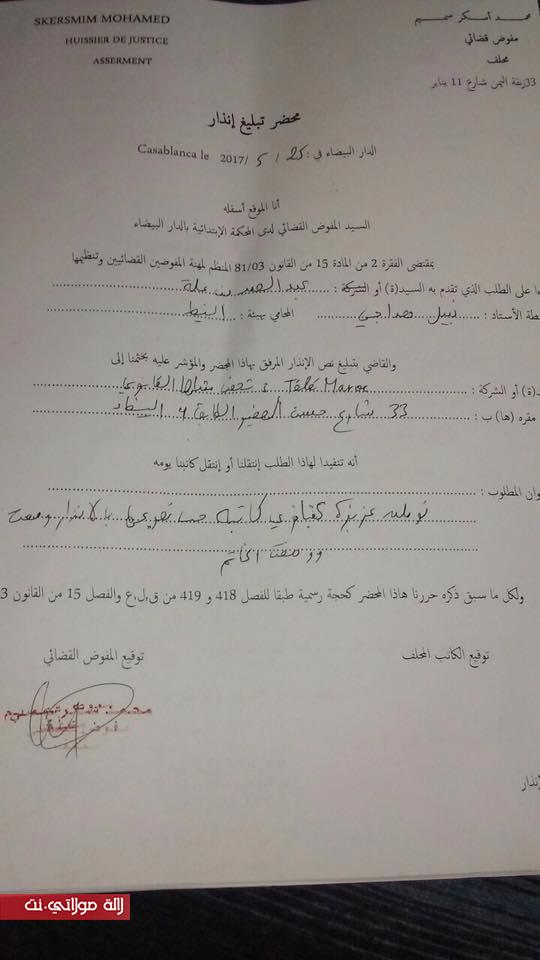 SKERSMIM MOHAMED
HUISSIER DE JUSTICE
ASSERMENT
محمد أسكر سميم
مفوض قضائي
محلف
33 زنقة اليمن شارع 11 يناير
محضر تبليغ إنذار
الدار البيضاء في : 25 / 5 /2017 Casablanca le
أنا الموقع أسفله
السيد المفوض القضائي لدى المحكمة الإبتدائية بالدار البيضاء
بمقتضى الفقرة 2 من المادة 15 من القانون 81/03 المنظم لمهنة المفوضين القضائيين وتنظيمها
على الطلب الذي تقدم به السيد(ة) أو الشركة : عبد الصمد
الأستاذ : نبيل المحامي بهيئة : البيضاء
والقاضي بتبليغ نص الإنذار المرفق بهاذا المحضر والمؤشر عليه بختمنا إلى
أو الشركة : Télé Maroc في شخص ممثلها القانوني
مقره (ها) ب : 33 شارع الطابق 4 البيضاء
أنه تنفيدا لهاذا الطلب إنتقلنا أو إنتقل كاتبنا يومه
المطلوب :
عزيزة كاتبة حسب تصريحها بالإنذار
ووضعت الخاتم
ولكل ما سبق ذكره حررنا هاذا المحضر كحجة رسمية طبقا للفصل 418 و 419 من ق.ل.ع والفصل 15 من القانون
توقيع الكاتب المحلف
توقيع المفوض القضائي
لالة مولاتي.نت